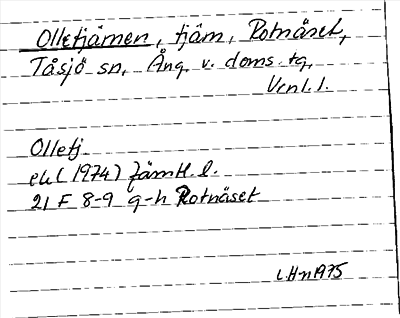 Olletjärnen, tjärn, Rotnäset,
Tåsjö sn, Ång. v. doms. tg,
Vcnl. l.
Olletj.
ek ( 1974) Jämtl. l.
21 F 8-9 g-h Rotnäset
L.Hn 1975